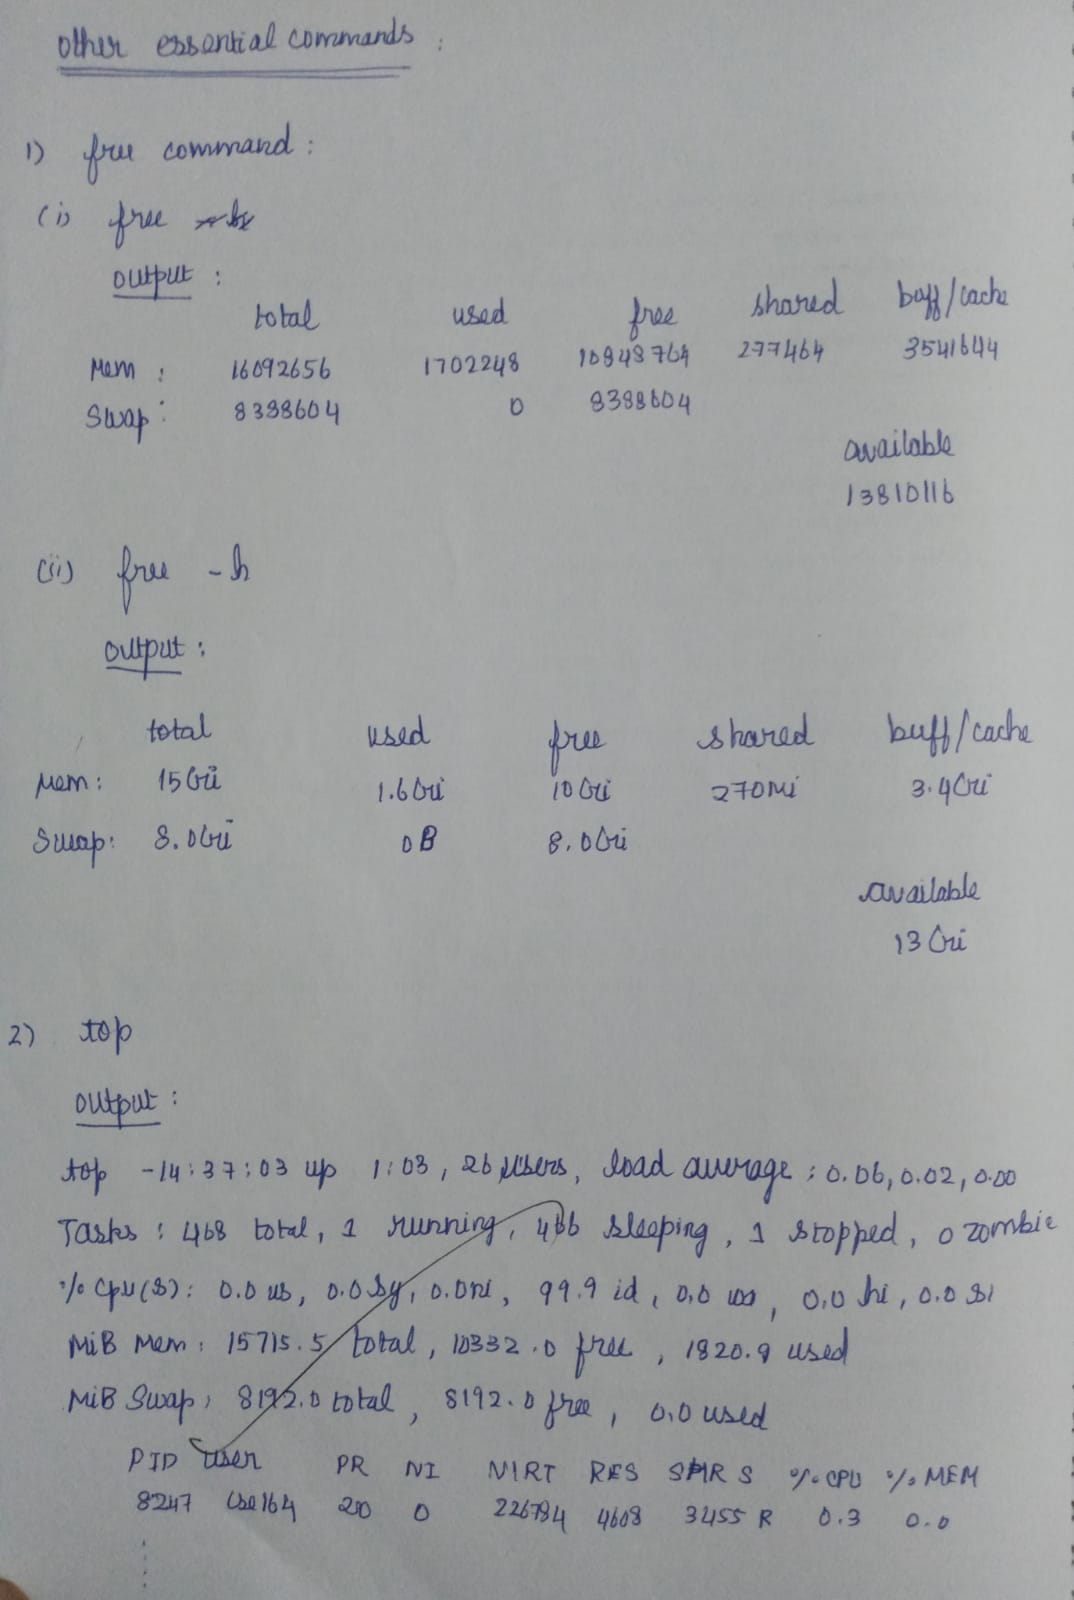 other essential commands :
1) free command :
(i) free
output :
total used free shared buff/cache
Mem : 16092656 1702248 10848764 277464 3541644
Swap : 8388604 0 8388604
available
13810116
(ii) free -h
output :
total used free shared buff/cache
Mem : 15Gi 1.6Gi 10Gi 270Mi 3.4Gi
Swap : 8.0Gi 0B 8.0Gi
available
13Gi
2) top
output :
top -14:37:03 up 1:03, 26 users, load average : 0.06, 0.02, 0.00
Tasks : 468 total, 1 running, 466 sleeping, 1 stopped, 0 zombie
% Cpu(s) : 0.0 us, 0.0 sy, 0.0 ni, 99.9 id, 0.0 wa, 0.0 hi, 0.0 si
MiB Mem : 15715.5 total, 10332.0 free, 1820.9 used
MiB Swap : 8192.0 total, 8192.0 free, 0.0 used
PID user PR NI VIRT RES SHR S %CPU %MEM
8247 cse164 20 0 226784 4608 3455 R 0.3 0.0